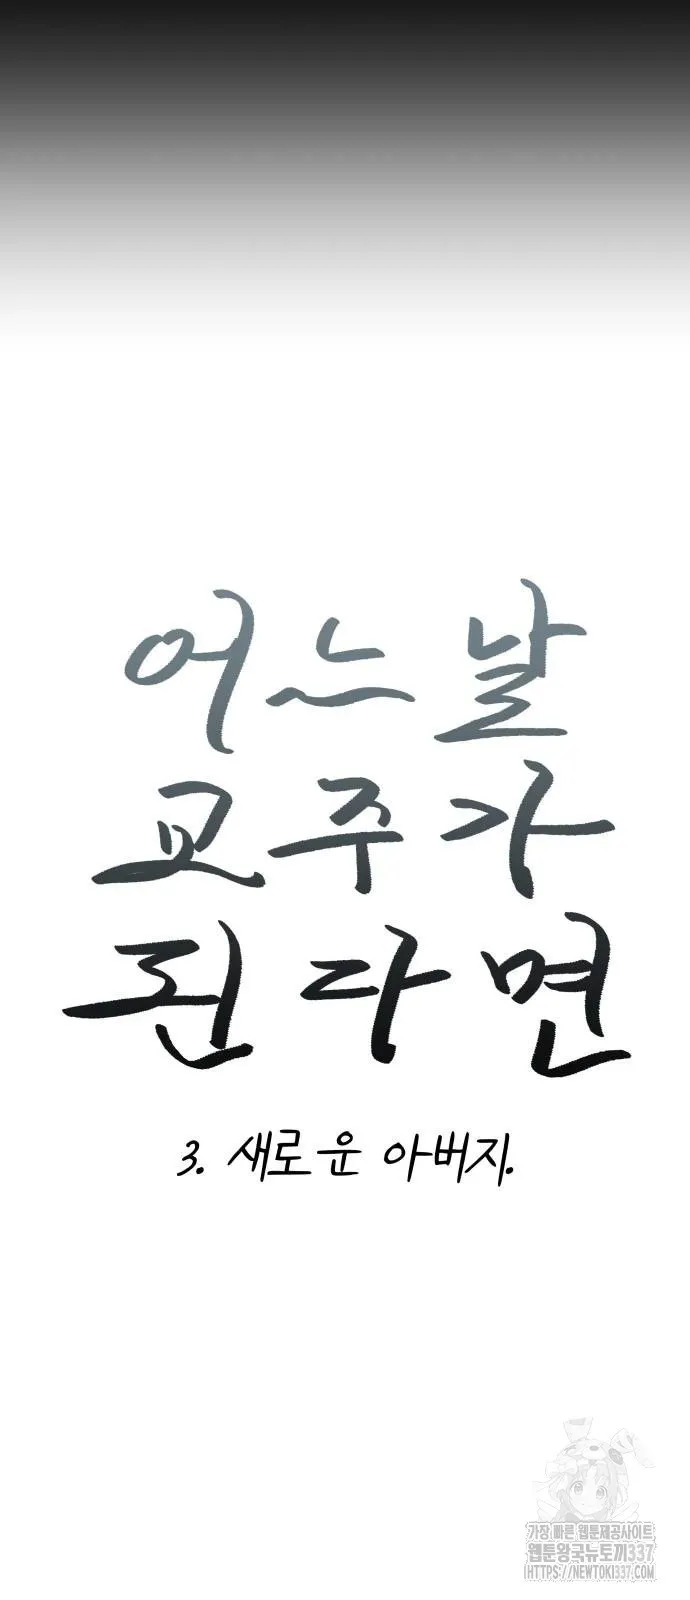 어느날
교주가
된다면
3. 새로운 아버지.
가장 빠른 웹툰제공사이트
웹툰왕국뉴토끼337
HTTPS://NEWTOKI337.COM